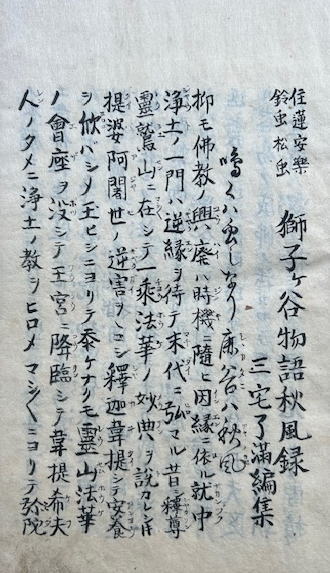 住蓮安樂
鈴虫松虫
獅子ヶ谷物語秋風録
三宅了滿編集
鳴くハ虫しなり鹿谷ハ秋風
抑モ佛教ノ興ハ廢ハ時機ニ隨ヒ因縁ニ依ル就中
淨土ノ一門ハ逆縁ヲ待テ末代ニ弘マル昔ニ釋尊
靈鷲山ニ在シテ一乘法華ノ妙典ヲ說カレシ
提婆阿闍世ノ逆害ヲコシ釋迦韋提シテ安養
ヲ忻バシメ玉ヒシニヨリテ忝ケナクモ靈山法華
ノ會座ヲ没シテ王宮ニ降臨シテ韋提希夫
人ノタメニ淨土ノ教ヲヒロメマシ〱ニヨリテ弥陀